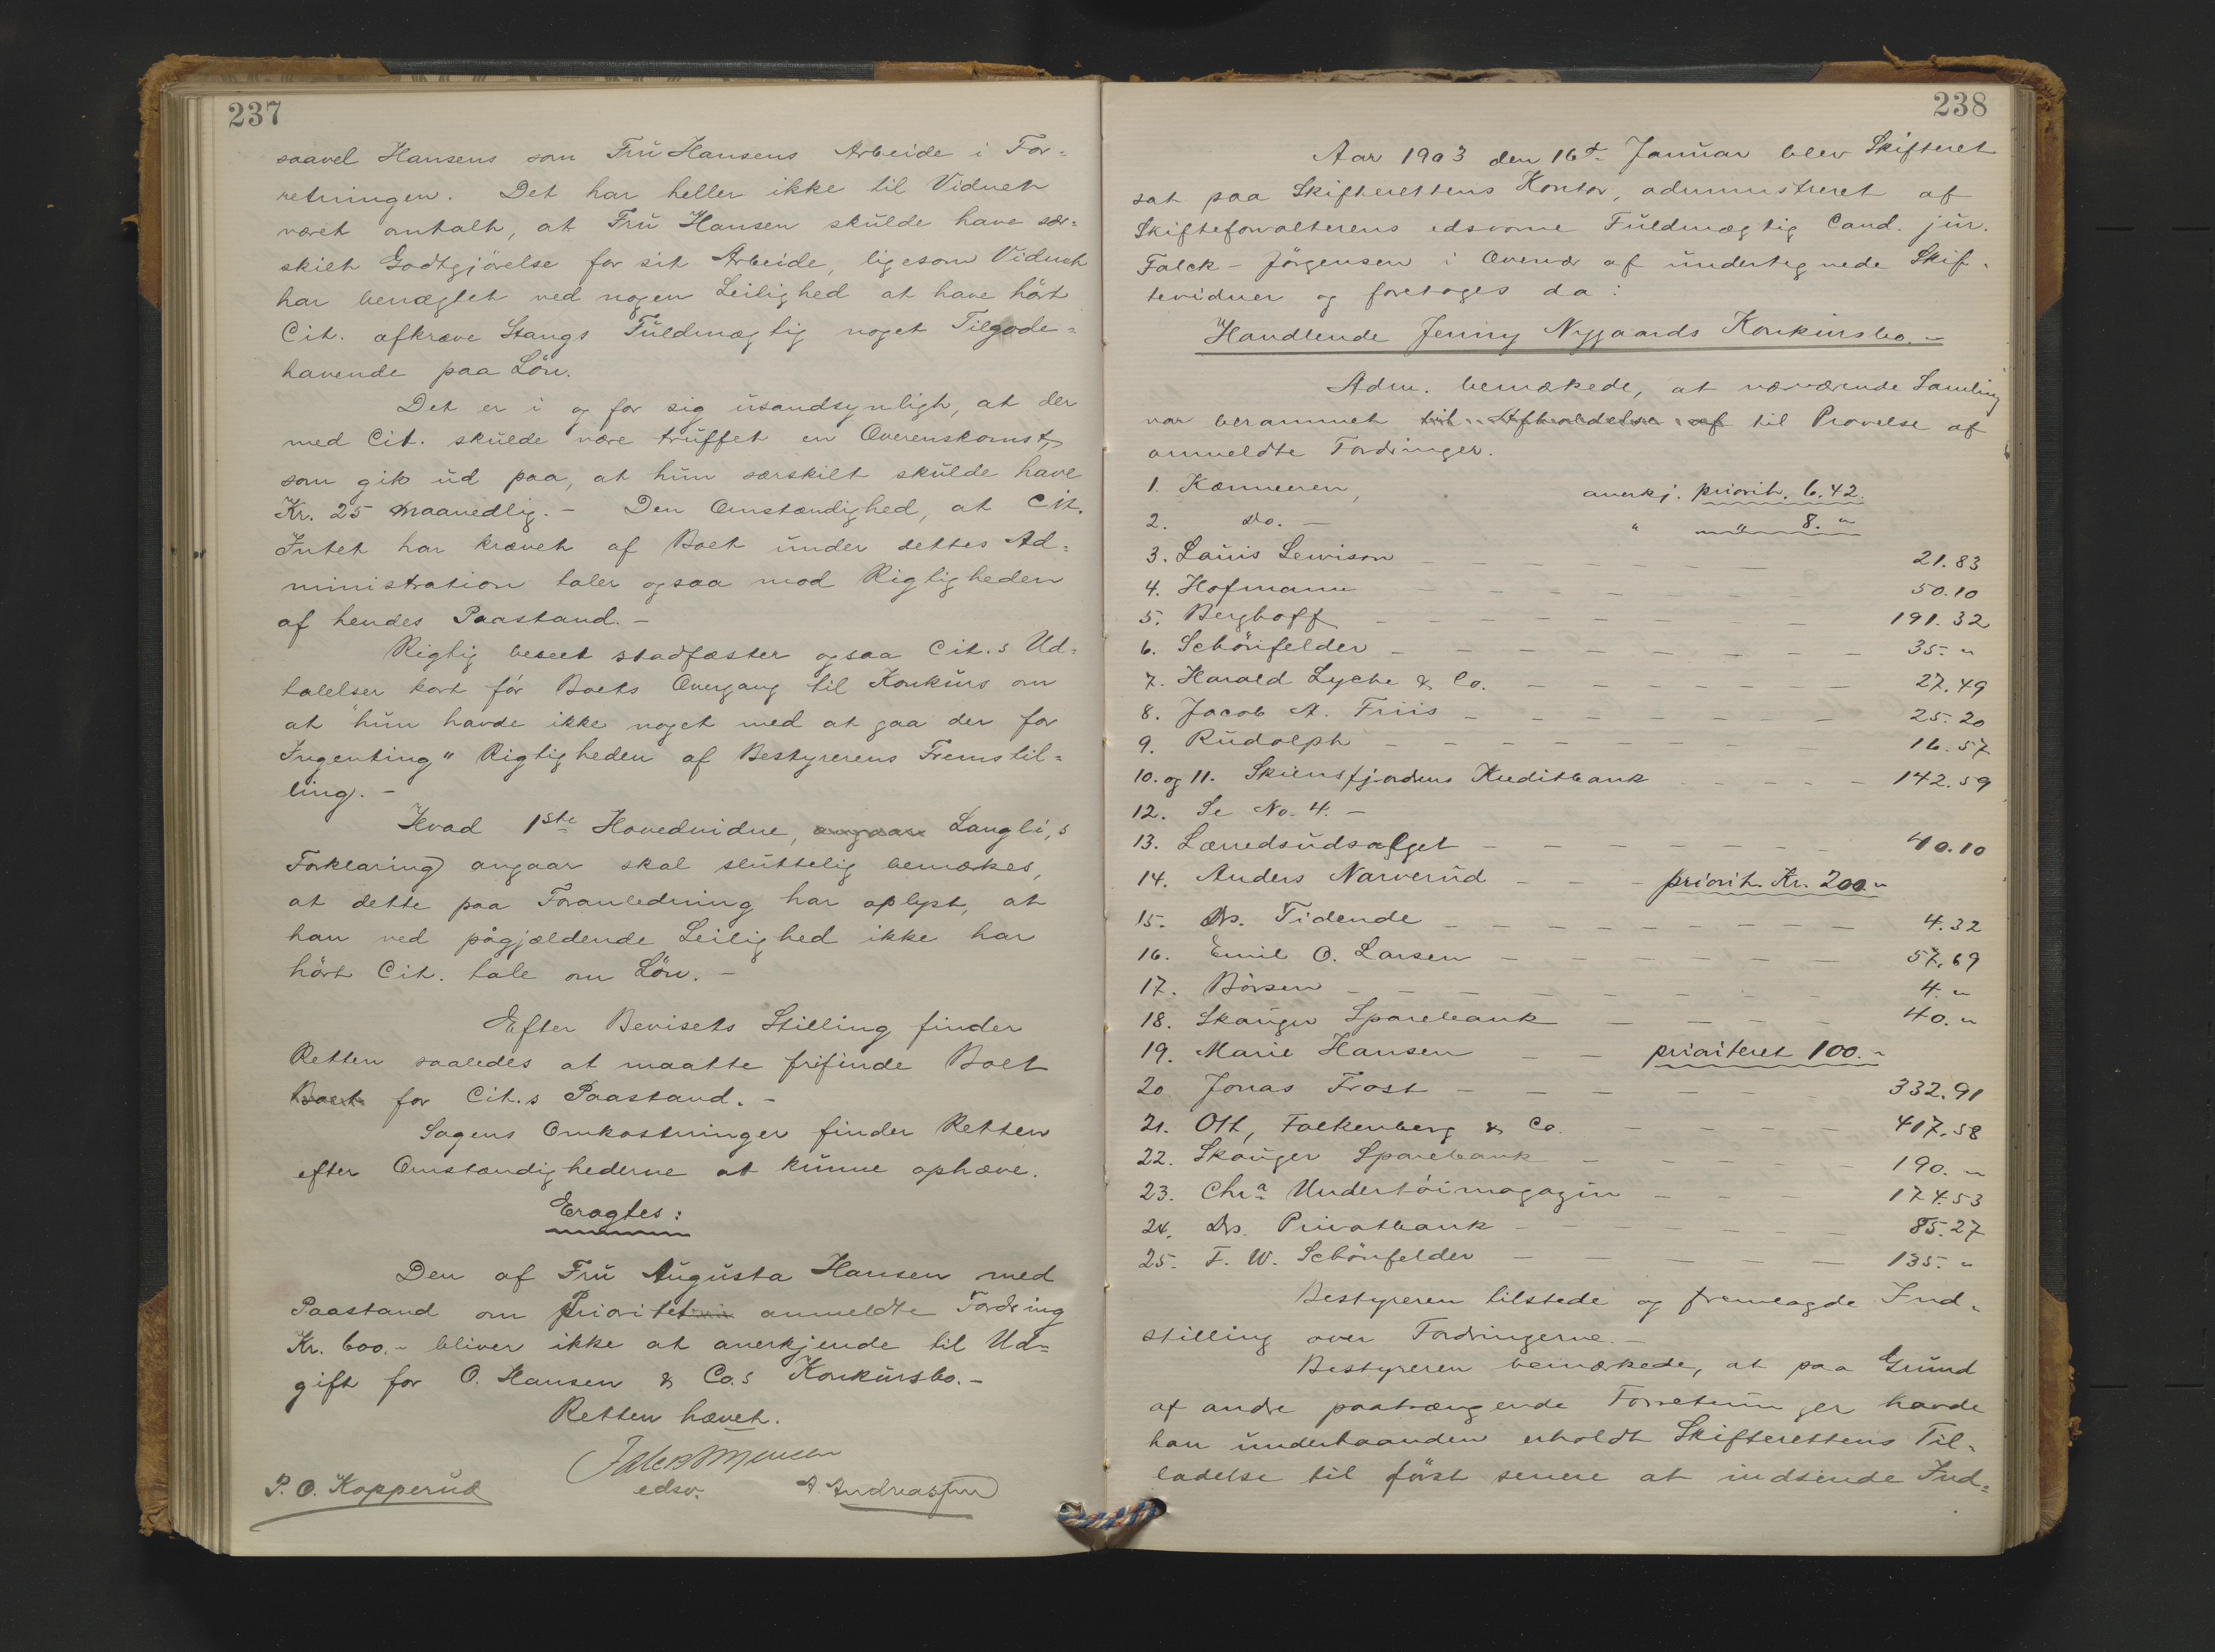 237
saavel Hansens som Fru Hansens Arbeide i For-
retningen. Det har heller ikke til Vidnet
været omtalt, at Fru Hansen skulde have sær-
skilt Godtgjörelse for sit Arbeide, ligesom Vidnet
har benægtet ved nogen Leilighed at have hört
Cit. afkræve Stangs Fuldmægtig noget Tilgode-
havende paa Lön.
Det er i og for sig usandsynligt, at der
med Cit. skulde være truffet en Overenskomst,
som gik ud paa, at hun særskilt skulde have
Kr. 25 maanedlig. - Den Omstændighed, at Cit.
Intet har krævet af Boet under dettes Ad-
ministration taler ogsaa mod Rigtigheden
af hendes Paastand. -
Rigtig beseet stadfæster ogsaa Cit.s Ud-
talelser kort för Boets Overgang til Konkurs om
at "hun havde ikke noget med at gaa der for
Ingenting" Rigtigheden af Bestyrerens Fremstil-
ling. -
Hvad 1ste Hovedvidne, angaar Langli,s
Forklaring angaar skal sluttelig bemærkes,
at dette paa Foranledning har oplyst, at
han ved pågjældende Leilighed ikke har
hört Cit. tale om Lön. -
Efter Bevisets Stilling finder
Retten saaledes at maatte frifinde Boet
Boet for Cit.s Paastand. -
Sagens Omkostninger finder Retten
efter Omstændighederne at kunne ophæve.
Eragtes:
Den af Fru Augusta Hansen med
Paastand om Prioritet anmeldte Fordring
Kr. 600.- bliver ikke at anerkjende til Ud-
gift for O. Hansen & Co.s Konkursbo. -
Retten hævet.
P. O. Kopperud
edsv.
A. Andreassen
238
Aar 1903 den 16d. Januar blev Skifteret
sat paa Skifterettens Kontor, administreret af
Skifteforvalterens edsvorne Fuldmægtig Cand. jur.
Falck-Jörgensen i Overvær af undertegnede Skif-
tevidner og foretoges da:
Handlende Jenny Nygaards Konkursbo. -
Adm. bemærkede, at nærværende Samling
var berammet til Afholdelse af til Prøvelse af
anmeldte Fordringer.
1. Kæmneren, anerkj. priorit. 6.42.
2. do. - " " 8. "
3. Louis Lewison - 21.83
4. Hofmann - 50.10
5. Berghoff - 191.32
6. Schönfelder - 35. "
7. Harald Lyche & Co. - 27.49
8. Jacob A. Friis - 25.20
9. Rudolph - 16.57
10. og 11. Skiensfjordens Kreditbank - 142.59
12. Se No. 4. -
13. Lærredsudsalget - 40.10
14. Anders Narverud - - - priorit. Kr. 200 "
15. Dr. Tidende - 4.32
16. Emil O. Larsen - 57.69
17. Börsen - 4. "
18. Skauger Sparebank - 40. "
19. Marie Hansen - - prioriteret 100. "
20 Jonas Frost - 332.91
21. Ott, Falkenberg & Co. - 417.58
22. Skauger Sparebank - 190. "
23. Chra Undertöimagazin - 174.53
24. Drs. Privatbank - 85.27
25. F. W. Schönfelder - 135. "
Bestyreren tilstede og fremlagde Ind-
stilling over Fordringerne. -
Bestyreren bemærkede, at paa Grund
af andre paatrængende Forretninger havde
han underhaanden erholdt Skifterettens Til-
ladelse til först senere at indsende Ind-